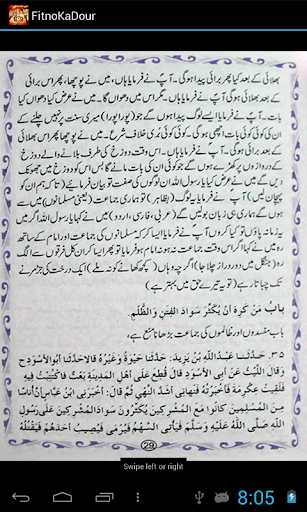 FitnoKaDour
بھلائی کے بعد کیا پھر برائی پیدا ہو گی۔ آپ نے فرمایا ہاں، میں نے پوچھا، پھر اس برائی
کے بعد بھلائی ہو گی۔ آپ نے فرمایا ہاں۔ مگر اس میں دھواں ہو گا۔ میں نے عرض کیا دھواں کیا
آپ نے فرمایا ایسے لوگ پیدا ہوں گے جو (پورا پورا) میری سنت پر نہیں چلنے کے
ان کی کوئی کوئی بات اچھی ہو گی۔ کوئی کوئی بری خلاف شرع۔ میں نے پوچھا پھر اس بھلائی
کے بعد برائی ہو گی۔ آپ نے فرمایا ہاں۔ اس وقت دوزخ کی طرف بلانے والے دوزخ کے
دروازوں پر کھڑے ہوں گے جو کوئی ان کی بات مانے گا بس اس کو دوزخ میں جھونک
دیں گے میں نے عرض کیا یا رسول اللہ ان لوگوں کی صفت تو بیان فرمائیے (تاکہ ہم ان کو
پہچان لیں) آپ نے فرمایا یہ لوگ (بظاہر) تو ہماری جماعت (یعنی مسلمانوں میں سے
ہوں گے ہماری ہی زبان بولیں گے (عربی، فارسی، اردو) میں نے کہا یا رسول اللہ اگر میں
یہ زمانہ پاؤں تو کیا کروں آپ نے فرمایا ایسا کر کہ مسلمانوں کی جماعت اور امام کے ساتھ
رہ میں نے کہا اگر اس وقت جماعت نہ ہو نہ امام ہو فرمایا تو پھر ایسا کر ان کل فرقوں سے الگ
رہ (جنگل میں دور دراز چلا جا) اگرچہ وہاں (کچھ کھانے کو نہ ملے) ایک درخت کی جڑ مرنے
تک چباتا رہے (تو یہ تیرے حق میں بہتر ہے)
بابُ مَن كَرِهَ اَنْ يُّكَثِّرَ سَوَادَ الفِتَنِ وَالظُّلْمِ.
باب مفسدوں اور ظالموں کی جماعت بڑھانا منع ہے،
۳۵. حَدَّثَنَا عَبْدُاللّٰهِ بْنُ يَزِيْدَ: حَدَّثَنَا حَيْوَةُ وَغَيْرُهُ قَالَا حَدَّثَنَا اَبُو الْاَسْوَدِ ح
وَقَالَ اللَّيْثُ عَنْ اَبِى الْاَسْوَدِ قَالَ قُطِعَ عَلٰى اَهْلِ الْمَدِيْنَةِ بَعْثٌ فَاكْتُتِبْتُ فِيْهِ
فَلَقِيْتُ عِكْرِمَةَ فَاَخْبَرْتُهُ فَنَهَانِى اَشَدَّ النَّهْىِ ثُمَّ قَالَ: اَخْبَرَنِى ابْنُ عَبَّاسٍ اَنَّ اُنَاسًا
مِنَ الْمُسْلِمِيْنَ كَانُوْا مَعَ الْمُشْرِكِيْنَ يُكَثِّرُوْنَ سَوَادَ الْمُشْرِكِيْنَ عَلٰى رَسُوْلِ
اللّٰهِ صَلَّى اللّٰهُ عَلَيْهِ وَسَلَّمَ فَيَأْتِى السَّهْمُ فَيُرْمٰى فَيُصِيْبُ اَحَدَهُمْ فَيَقْتُلُهُ
29
Swipe left or right
8:05